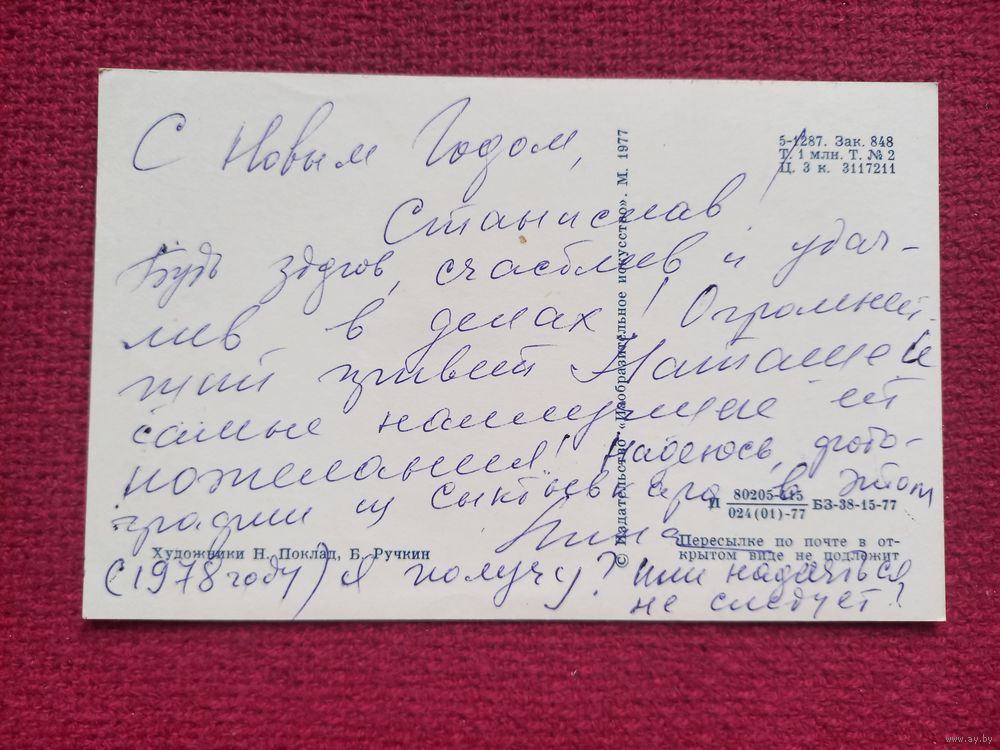 С Новым Годом,
Станислав!
Будь здоров, счастлив и удач-
лив в делах! Огромней-
ший привет Наташе и
самые наилучшие ей
пожелания! Надеюсь, фото-
графии из Сыктывкара в этом
(1978 году) я получу? Или надеяться
не следует?
Нина
5-1287. Зак. 848
Т. 1 млн. Т. № 2
Ц. 3 к. 3117211
© Издательство «Изобразительное искусство». М. 1977
И 80205-415
024(01)-77 БЗ-38-15-77
Пересылке по почте в от-
крытом виде не подлежит
Художники Н. Поклад, Б. Ручкин
www.ay.by